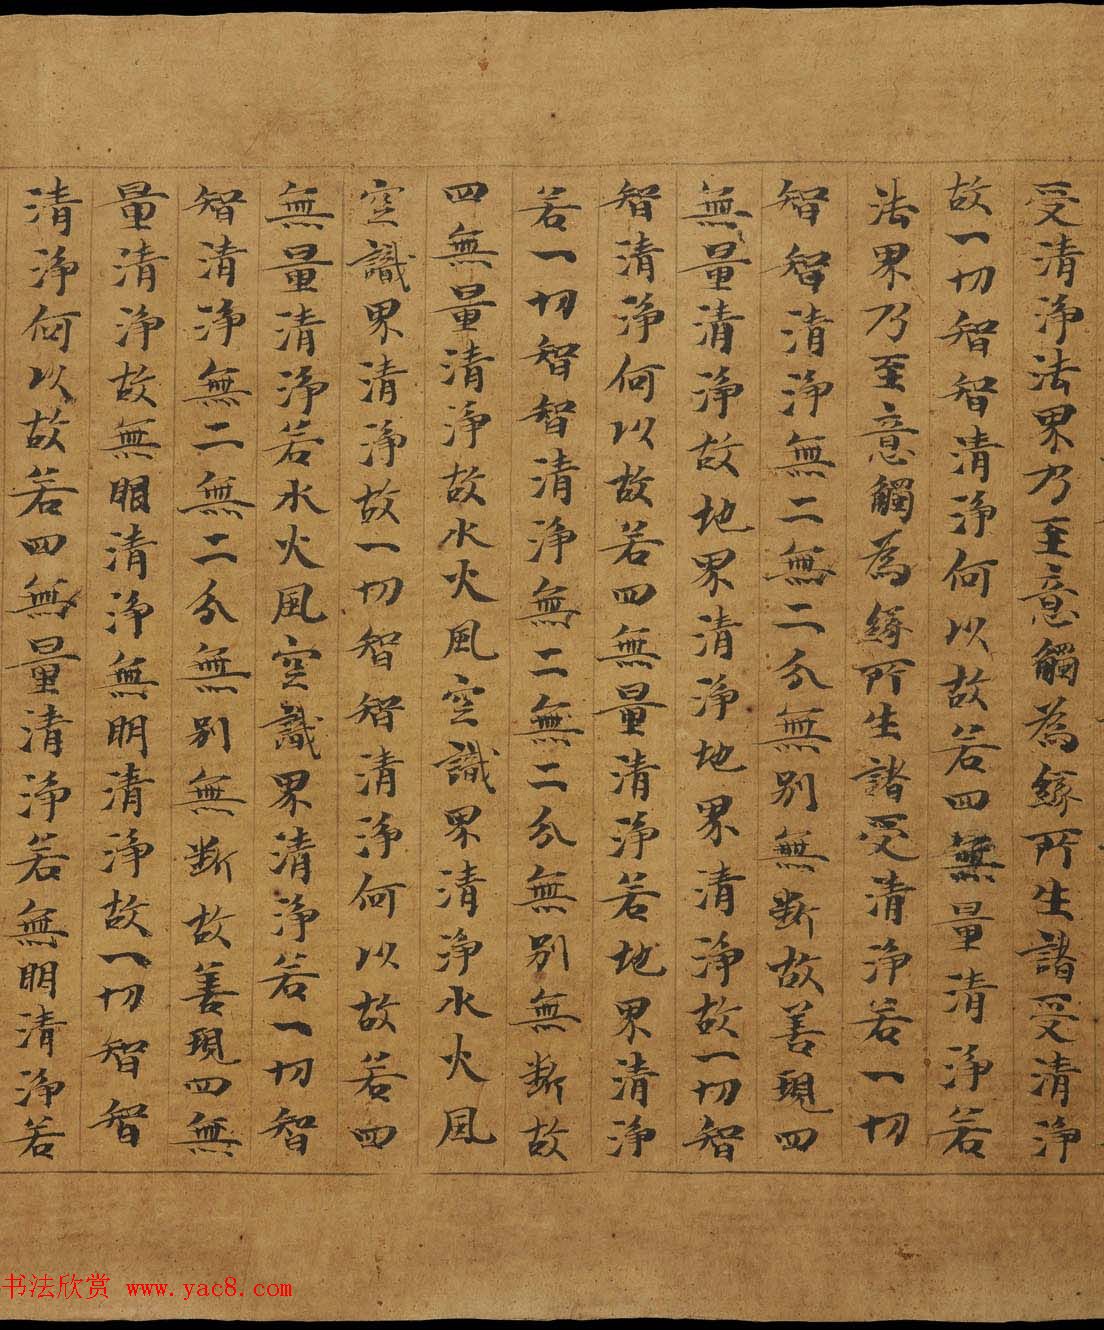 受清淨法界乃至意觸為緣所生諸受清淨
故一切智智清淨何以故若四無量清淨若
法界乃至意觸為緣所生諸受清淨若一切
智智清淨無二無二分無別無斷故善現四
無量清淨故地界清淨地界清淨故一切智
智清淨何以故若四無量清淨若地界清淨
若一切智智清淨無二無二分無別無斷故
四無量清淨故水火風空識界清淨水火風
空識界清淨故一切智智清淨何以故若四
無量清淨若水火風空識界清淨若一切智
智清淨無二無二分無別無斷故善現四無
量清淨故無眼清淨無明清淨故一切智智
清淨何以故若四無量清淨若無明清淨若
书法欣赏 www.yac8.com